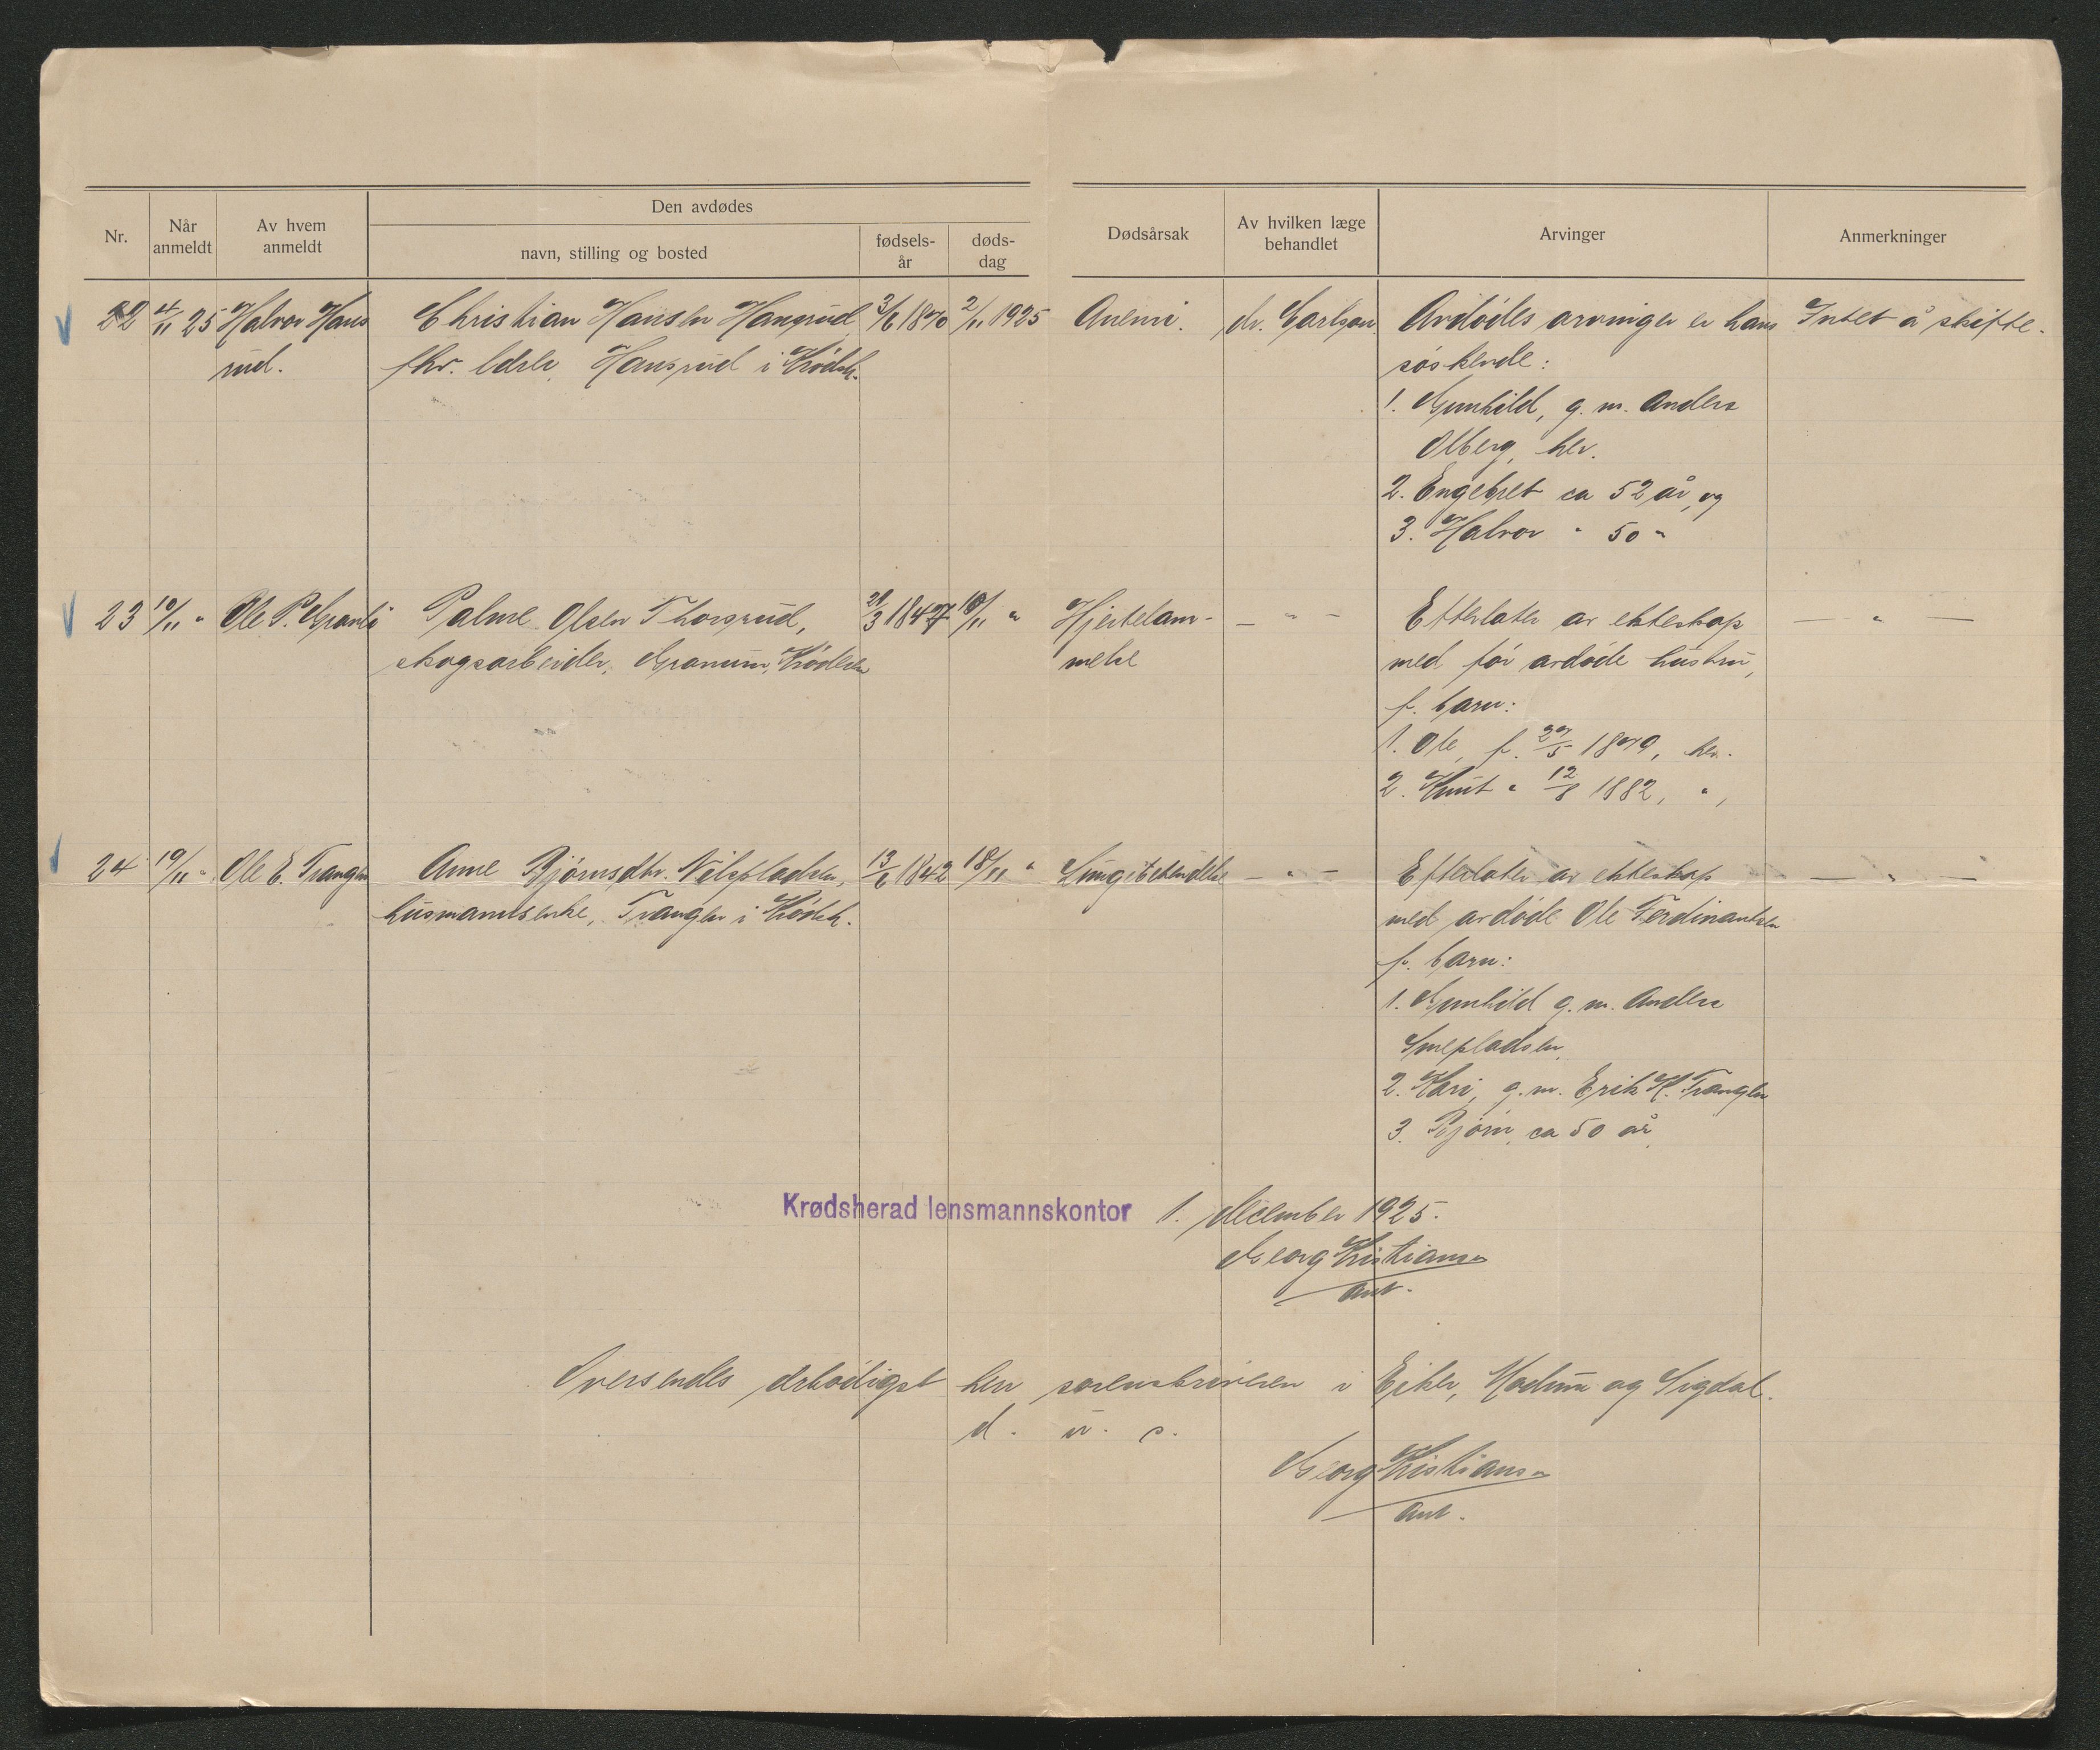 Den avdødes
Nr.
Når anmeldt
Av hvem anmeldt
navn, stilling og bosted
fødsels-år
døds-dag
Dødsårsak
Av hvilken læge behandlet
Arvinger
Anmerkninger
22 4/11 25 Halvor Hans Christian Hansen Hansrud 3/6 1870 2/11 1925 Anemi. dr. Carlson. Avdødes arvinger er hans Intet å skifte.
rud. fhv. Hansrud i Krødsh. søskende:
1. Gunhild, g. m. Anders
Olberg, her.
2. Engebret ca 52 år, og
3. Halvor " 50 "
23 10/11 " Ole P. Palme Olsen Thorsrud, 21/3 1847 10/11 " Hjertelam- — " — Efterlater av ekteskap — " —
skogsarbeider, Granum, Krødsh. melse med før avdøde hustru,
f. barn:
1. Ole, f. 27/5 1879, her.
2. Knut " 12/8 1882, ",
24 19/11 " Ole E. Trangen Anne Bjørnsdtr. Nilspladsen, 13/6 1842 18/11 " Lungebetendelse — " — Efterlater av ekteskap — " —
husmannsenke, Trangen i Krødsh. med avdøde Ole Ferdinantsen
f. barn:
1. Gunhild g. m. Anders
Smepladsen.
2. Kari, g. m. Erik K. Trangen
3. Bjørn, ca 50 år.
Krødsherad lensmannskontor 1. december 1925.
Georg Kristiansen
ant.
Oversendes ærbødigst herr sorenskriveren i Eiker, Modum og Sigdal.
d. u. s.
Georg Kristiansen
ant.